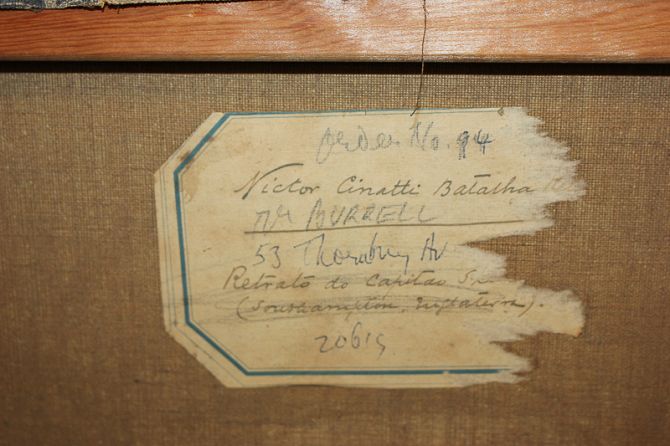 Order No. 94
Victor Cinatti Batalha
Mr BURRELL
53 Thornbury Av
Retrato do Capitao
(Southampton, Inglaterra).
20619